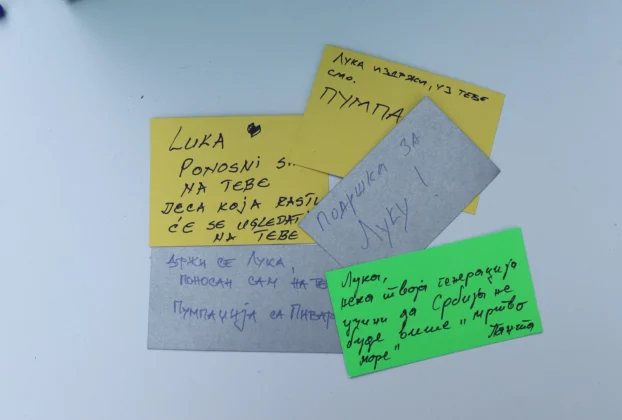 ЛУКА ИЗДРЖИ, УЗ ТЕБЕ
СМО.
ПУМПА
LUKA
PONOSNI S
NA TEBE
DECA KOJA RASTU
ĆE SE UGLEDAT
NA TEBE
ПОДРШКА ЗА
ЛУКУ !
ДРЖИ СЕ ЛУКА,
ПОНОСАН САМ НА ТЕ
ПУМПАЏИЈА СА
Лука,
нека твоја генерација
учини да Србија не
буде више „мртво
море"